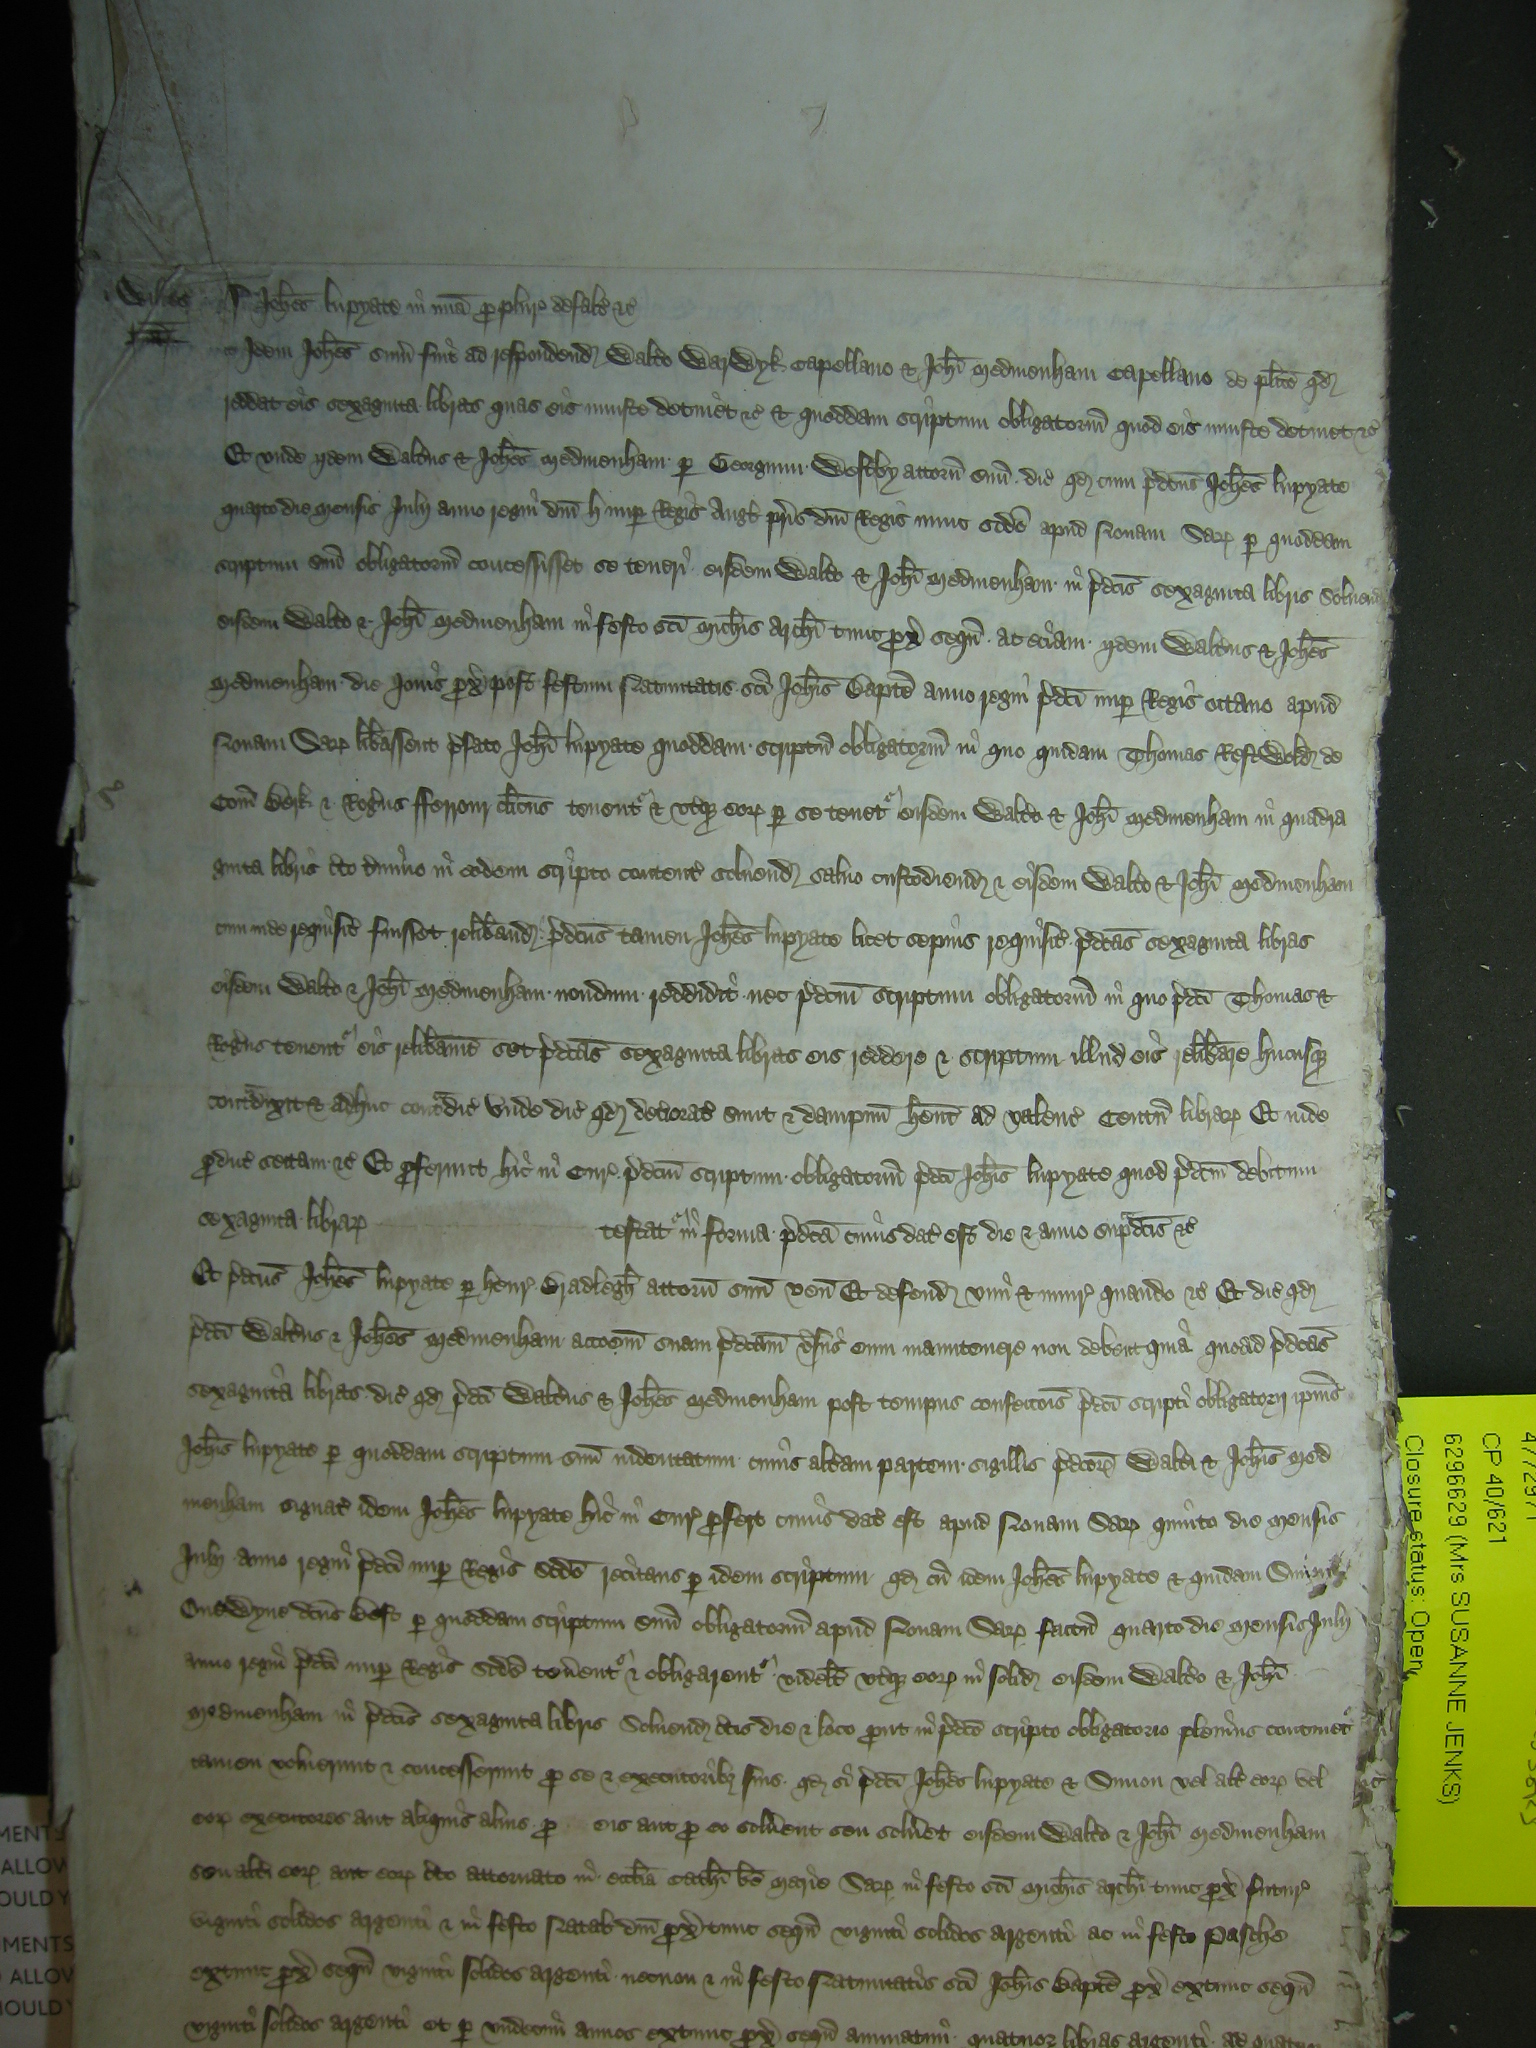 Wiltes
Johes lupyate in mia p plur defalt &c
Idem Johes sum fuit ad respondend Walto Warwyk Capellano & Johi Medmenham Capellano de plito qd
reddat eis sexaginta libras quas eis iniuste detinet &c Et quoddam scriptum obligatorm quod eis iniuste detinet &c
Et unde ijdem Waltus & Johes Medmenham p Georgium Westby attorn suu dic qd cum pdcus Johes lupyate
quarto die mensis Julij anno regni dni H nup Regis Angl pris dni Regis nunc scdo apud Novam Sar p quoddam
scriptum suu obligatorm concessisset se teneri eisdem Walto & Johi Medmenham in pdcis sexaginta libris Solvend
eisdem Walto & Johi Medmenham in festo sci Michis Archi tunc px sequn ac eciam ijdem Waltus & Johes
Medmenham die Jovis px post festum Nativitatis sci Johis Bapte anno regni pdci nup Regis octavo apud
Novam Sar libassent pfato Johi lupyate quoddam scriptu obligatorm in quo quidam Thomas Restwold de
Com Berk & Rogus fferrour clicus tenent & utq eor p se tenet eisdem Walto & Johi Medmenham in quadra
ginta libris cto timino in eodem scripto content solvend salvo custodiend & eisdem Walto & Johi Medmenham
cum inde requisit fuisset reliband pdcus tamen Johes lupyate licet sepius requisit pdcas sexaginta libras
eisdem Walto & Johi Medmenham nondum reddidit nec pdcm scriptum obligatorm in quo pdci Thomas &
Rogus tenent eis relibavit set pdcas sexaginta libras eis reddere & scriptum illud eis relibare hucusq
contdixit & adhuc contdic Unde dic qd detiorat sunt & dampnu hent ad valenc Centu librar Et inde
pduc sectam &c Et pferunt hic in Cur pdcm scriptum obligatorm pdci Johis lupyate quod pdcm debitum
sexaginta librar testat in forma pdca cuius dat est die & anno supdcis &c
Et pdcus Johes lupyate p Henr Bradlegh attorn suu ven Et defend vim & iniur quando &c Et dic qd
pdci Waltus & Johes Medmenham accoem suam pdcam vsus eum manutenere non debent quia quoad pdcas
sexaginta libras dic qd pdci Waltus & Johes Medmenham post tempus confeccois pdci scripti obligatorij ipius
Johis lupyate p quoddam scriptum suu indentatum cuius altam partem sigillis pdcor Walti & Johis Med
menham signat idem Johes lupyate hic in Cur pfert cuius dat est apud Novam Sar quinto die mensis
Julij anno regni pdci nup Regis scdo recitans p idem scriptum qd cu idem Johes lupyate & quidam Simon
Onewyne dcus Best p quoddam scriptum suu obligatorm apud Novam Sar factu quarto die mensis Julij
anno regni pdci nup Regis scdo tenent & obligarent videlt utq eor in solid eisdem Walto & Johi
Medmenham in pdcis sexaginta libris Solvend ctis die & loco put in pdco scripto obligatorio plenius continet
tamen voluerunt & concesserunt p se & executorib suis qd si pdci Johes lupyate & Simon vel alt eor vel
eor executores aut aliquis alius p eis aut p eo solvent seu solvet eisdem Walto & Johi Medmenham
seu alti eor aut eor cto attornato in ecclia cathi be Marie Sar in festo sci Michis Archi tunc px futur
viginti solidos argenti & in festo Natal dni px tunc sequn viginti solidos argenti ac in festo Pasche
extunc px sequn viginti solidos argenti necnon & in festo Nativitatis sci Johis Bapte px extunc sequn
viginti solidos argenti et p undecim annos extunc px sequn annuatim quatuor libras argenti ad quatuor
CP 40/621
6296629 (Mrs SUSANNE JENKS)
Closure status: Open